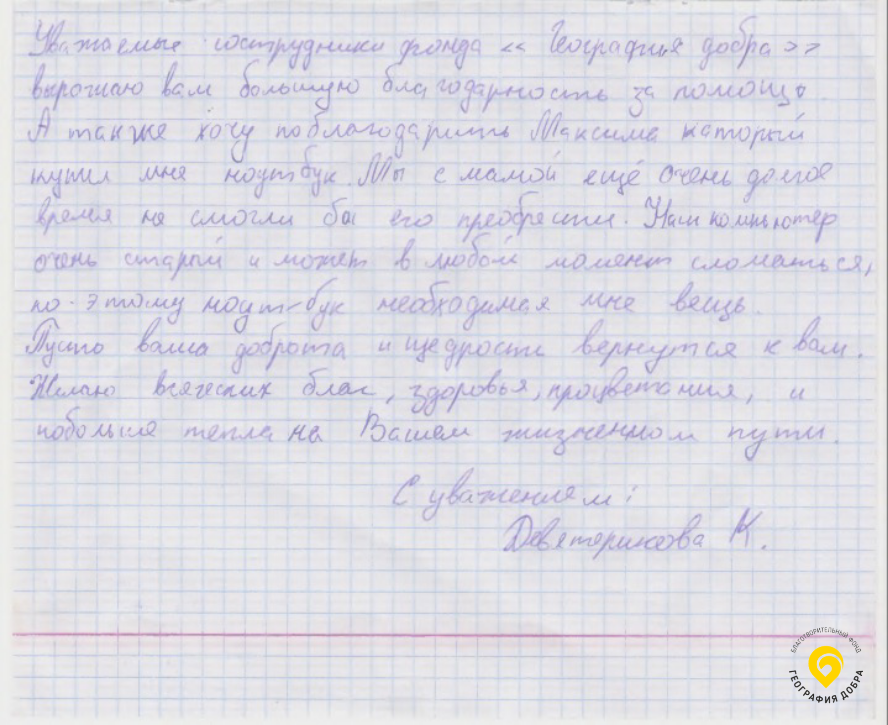 Уважаемые сострудники фонда << География добра >>
выражаю вам большую благодарность за помощь.
А также хочу поблагодарить Максима каторый
купил мне ноутбук. Мы с мамой ещё очень долгое
время не смогли бы его преобрести. Наш компьютер
очень старый и может в любой момент сломаться,
по-этому ноут-бук необходимая мне вещь.
Пусть ваша доброта и щедрость вернутся к вам.
Желаю всяческих благ, здоровья, процветания, и
побольше тепла на Вашем жизненном пути.
С уважением:
Девятерикова К.
БЛАГОТВОРИТЕЛЬНЫЙ ФОНД
ГЕОГРАФИЯ ДОБРА